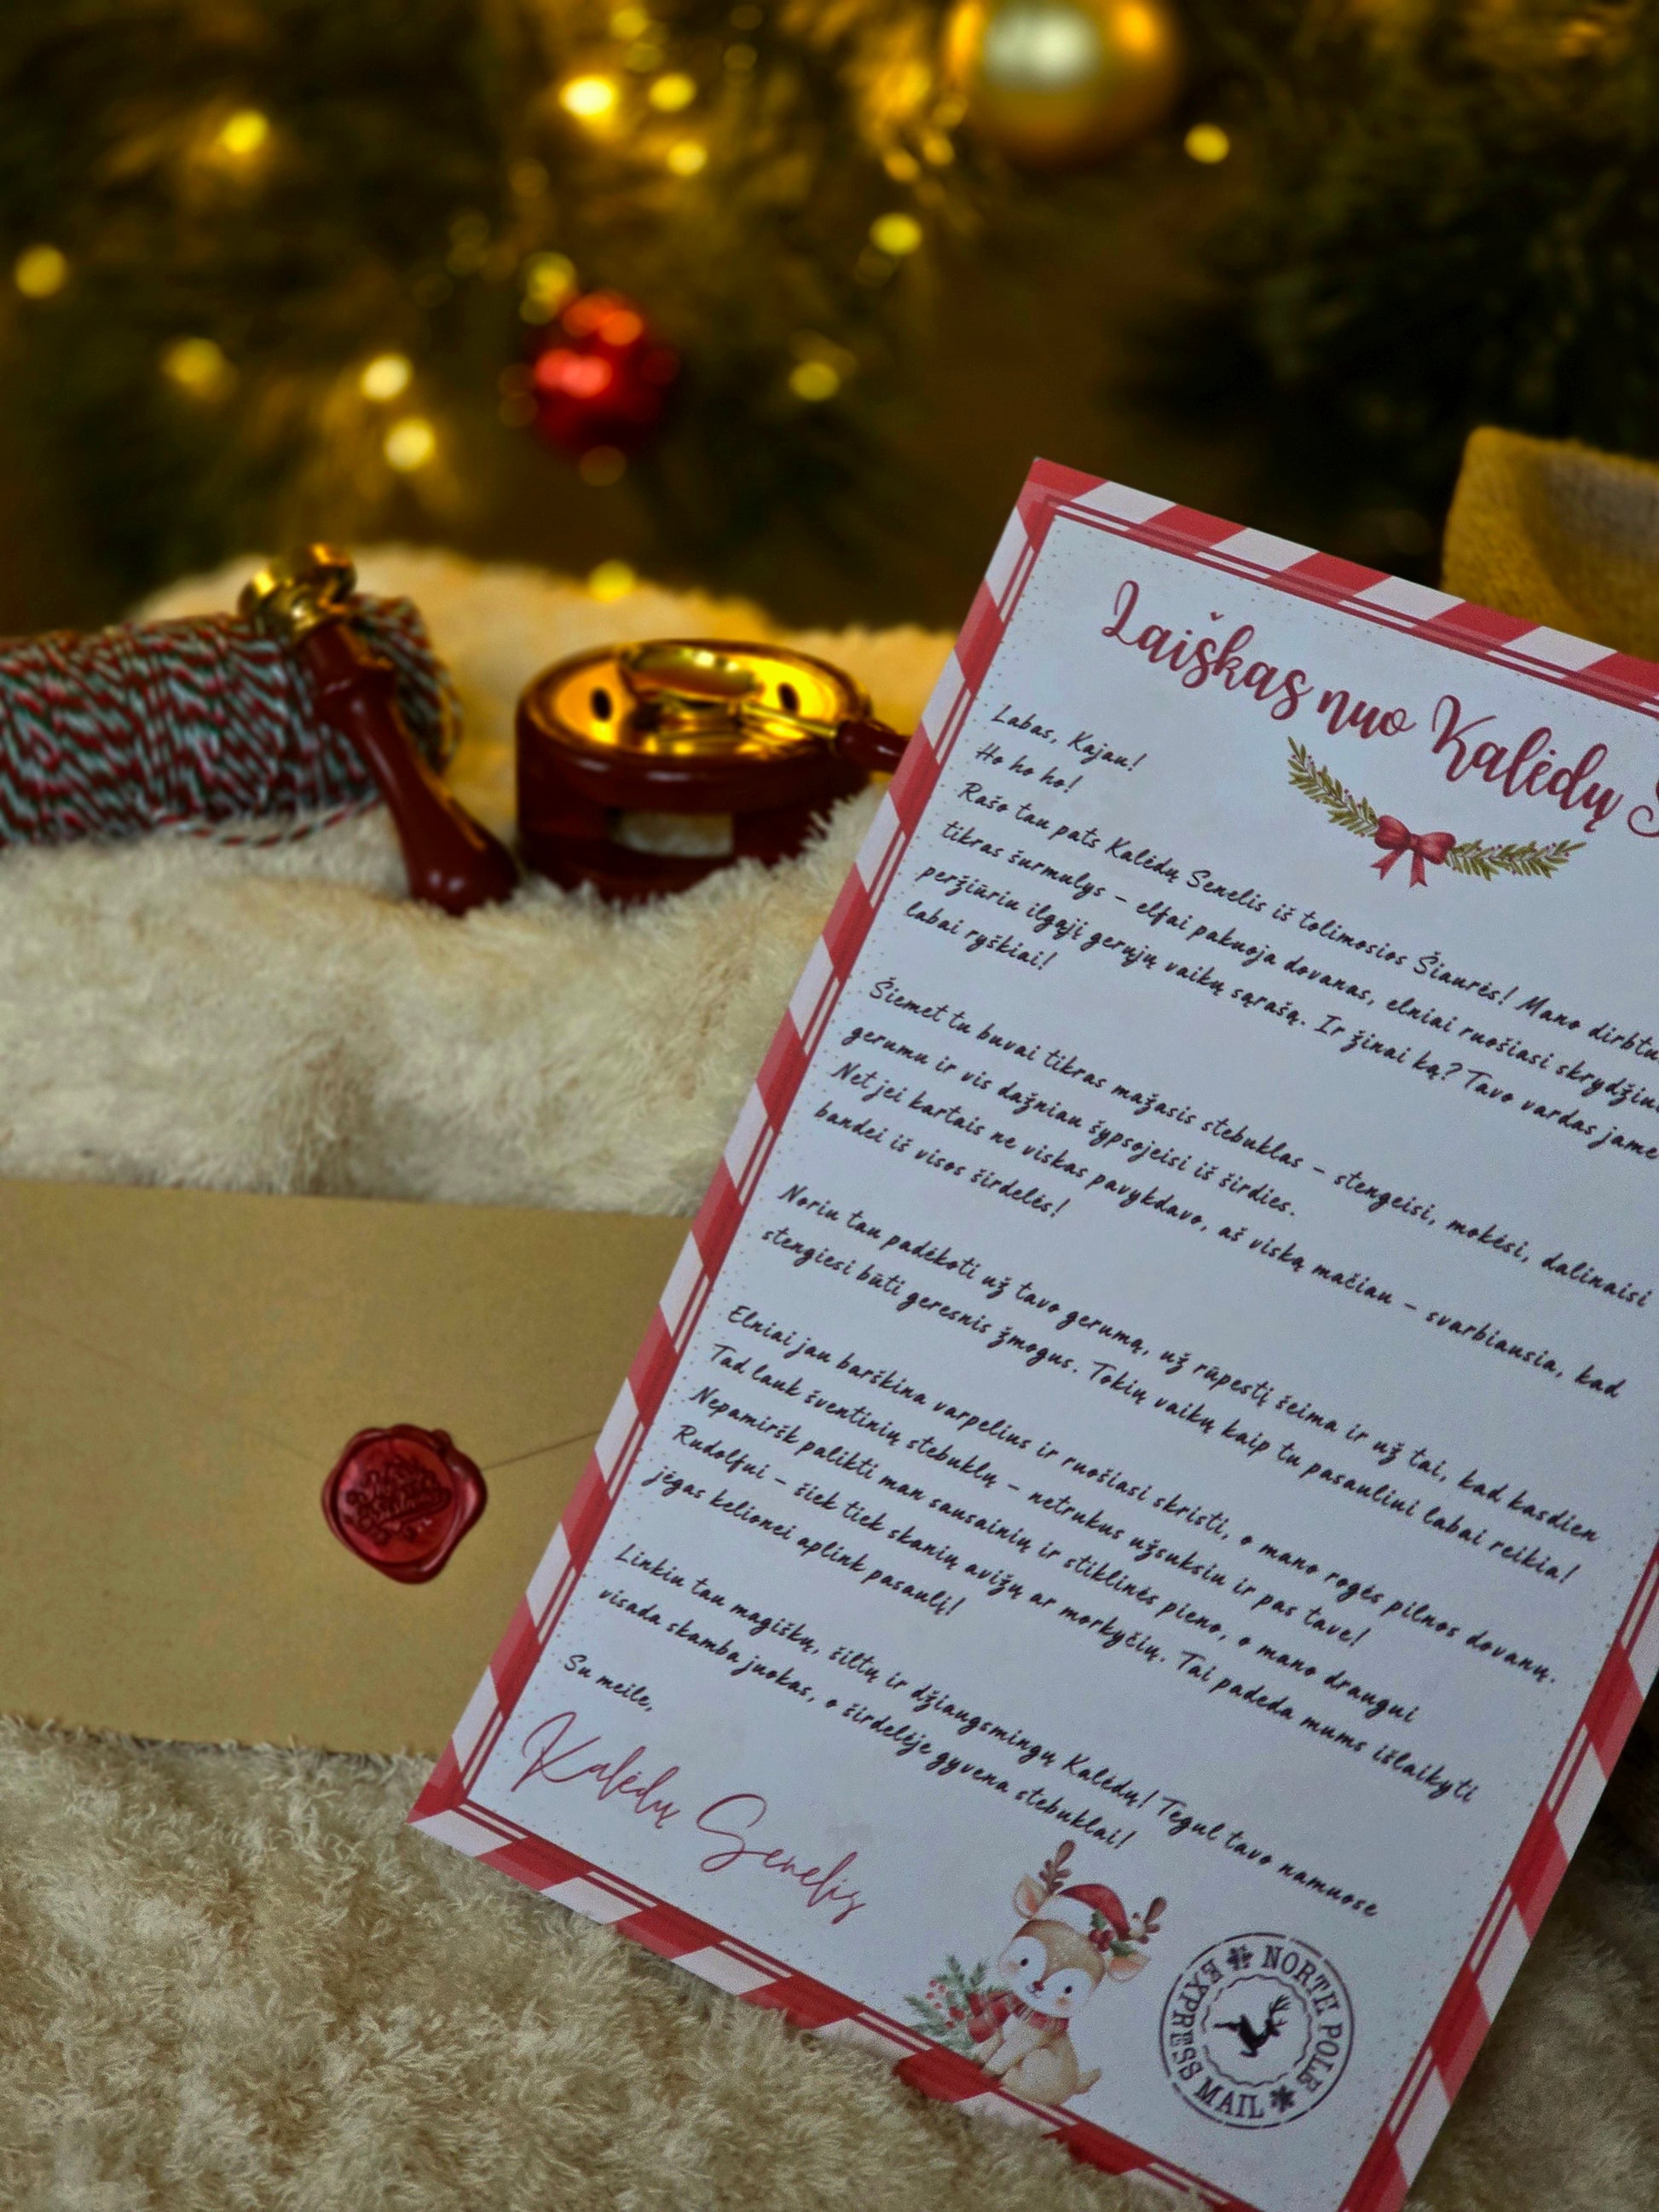 Laiškas nuo Kalėdų S
Labas, Kajau!
Ho ho ho!
Rašo tau pats Kalėdų Senelis iš tolimosios Šiaurės! Mano dirbtu
tikras šurmulys – elfai pakuoja dovanas, elniai ruošiasi skrydžiui
peržiūriu ilgąjį gerųjų vaikų sąrašą. Ir žinai ką? Tavo vardas jame
labai ryškiai!
Šiemet tu buvai tikras mažasis stebuklas – stengeisi, mokėsi, dalinaisi
gerumu ir vis dažniau šypsojeisi iš širdies.
Net jei kartais ne viskas pavykdavo, aš viską mačiau – svarbiausia, kad
bandei iš visos širdelės!
Noriu tau padėkoti už tavo gerumą, už rūpestį šeima ir už tai, kad kasdien
stengiesi būti geresnis žmogus. Tokių vaikų kaip tu pasauliui labai reikia!
Elniai jau barškina varpelius ir ruošiasi skristi, o mano rogės pilnos dovanų.
Tad lauk šventinių stebuklų – netrukus užsuksiu ir pas tave!
Nepamiršk palikti man sausainių ir stiklinės pieno, o mano draugui
Rudolfui – šiek tiek skanių avižų ar morkyčių. Tai padeda mums išlaikyti
jėgas kelionei aplink pasaulį!
Linkiu tau magiškų, šiltų ir džiaugsmingų Kalėdų! Tegul tavo namuose
visada skamba juokas, o širdelėje gyvena stebuklai!
Su meile,
Kalėdų Senelis
NORTE POLE
EXPRESS MAIL